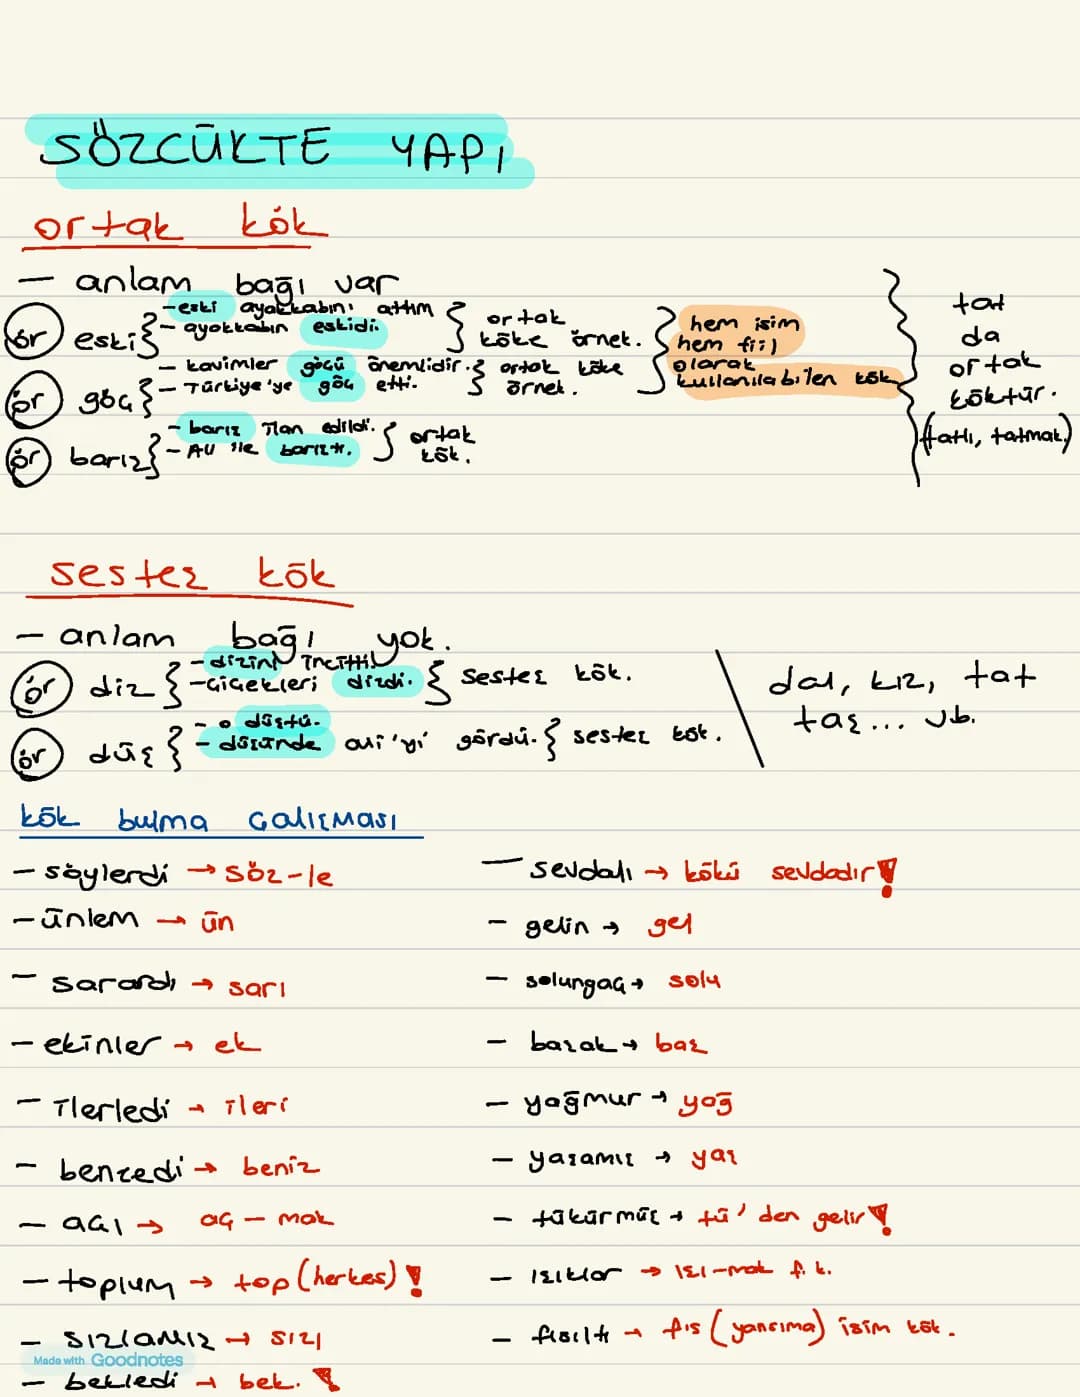 SÖZCÜKTE YAPI
ortak kök
— anlam bağı var
ör eski { - eski ayakkabını attım
- ayakkabın eskidi. } ortak köke örnek.
ör göç { - kavimler göçü önemlidir.
- Türkiye'ye göç etti. } ortak köke örnek.
ör barış { - barış ilan edildi.
- Ali ile barıştı. } ortak kök.
} hem isim
hem fiil
olarak
kullanılabilen kök
} tat
da
ortak
köktür.
(tatlı, tatmak)
sesteş kök
— anlam bağı yok.
ör diz { - dizini incitti.
- çiçekleri dizdi. } sesteş kök.
ör düş { - o düştü.
- düşünde Ali'yi gördü. } sesteş kök.
dal, kız, tat
taş... vb.
kök bulma çalışması
- söylerdi → söz-le
- ünlem → ün
- sarardı → sarı
- ekinler → ek
- ilerledi → ileri
- benzedi → beniz
- açı → aç - mak
- toplum → top (herkes) !
- sızlamız → sızı
- bekledi → bek. !
- sevdalı → kökü sevdadır !
- gelin → gel
- solungaç → solu
- başak → baş
- yağmur → yağ
- yaşamış → yaş
- tükürmüş → tü' den gelir !
- ışıklar → ışı-mak f. k.
- fısıltı → fıs (yansıma) isim kök.
Made with Goodnotes